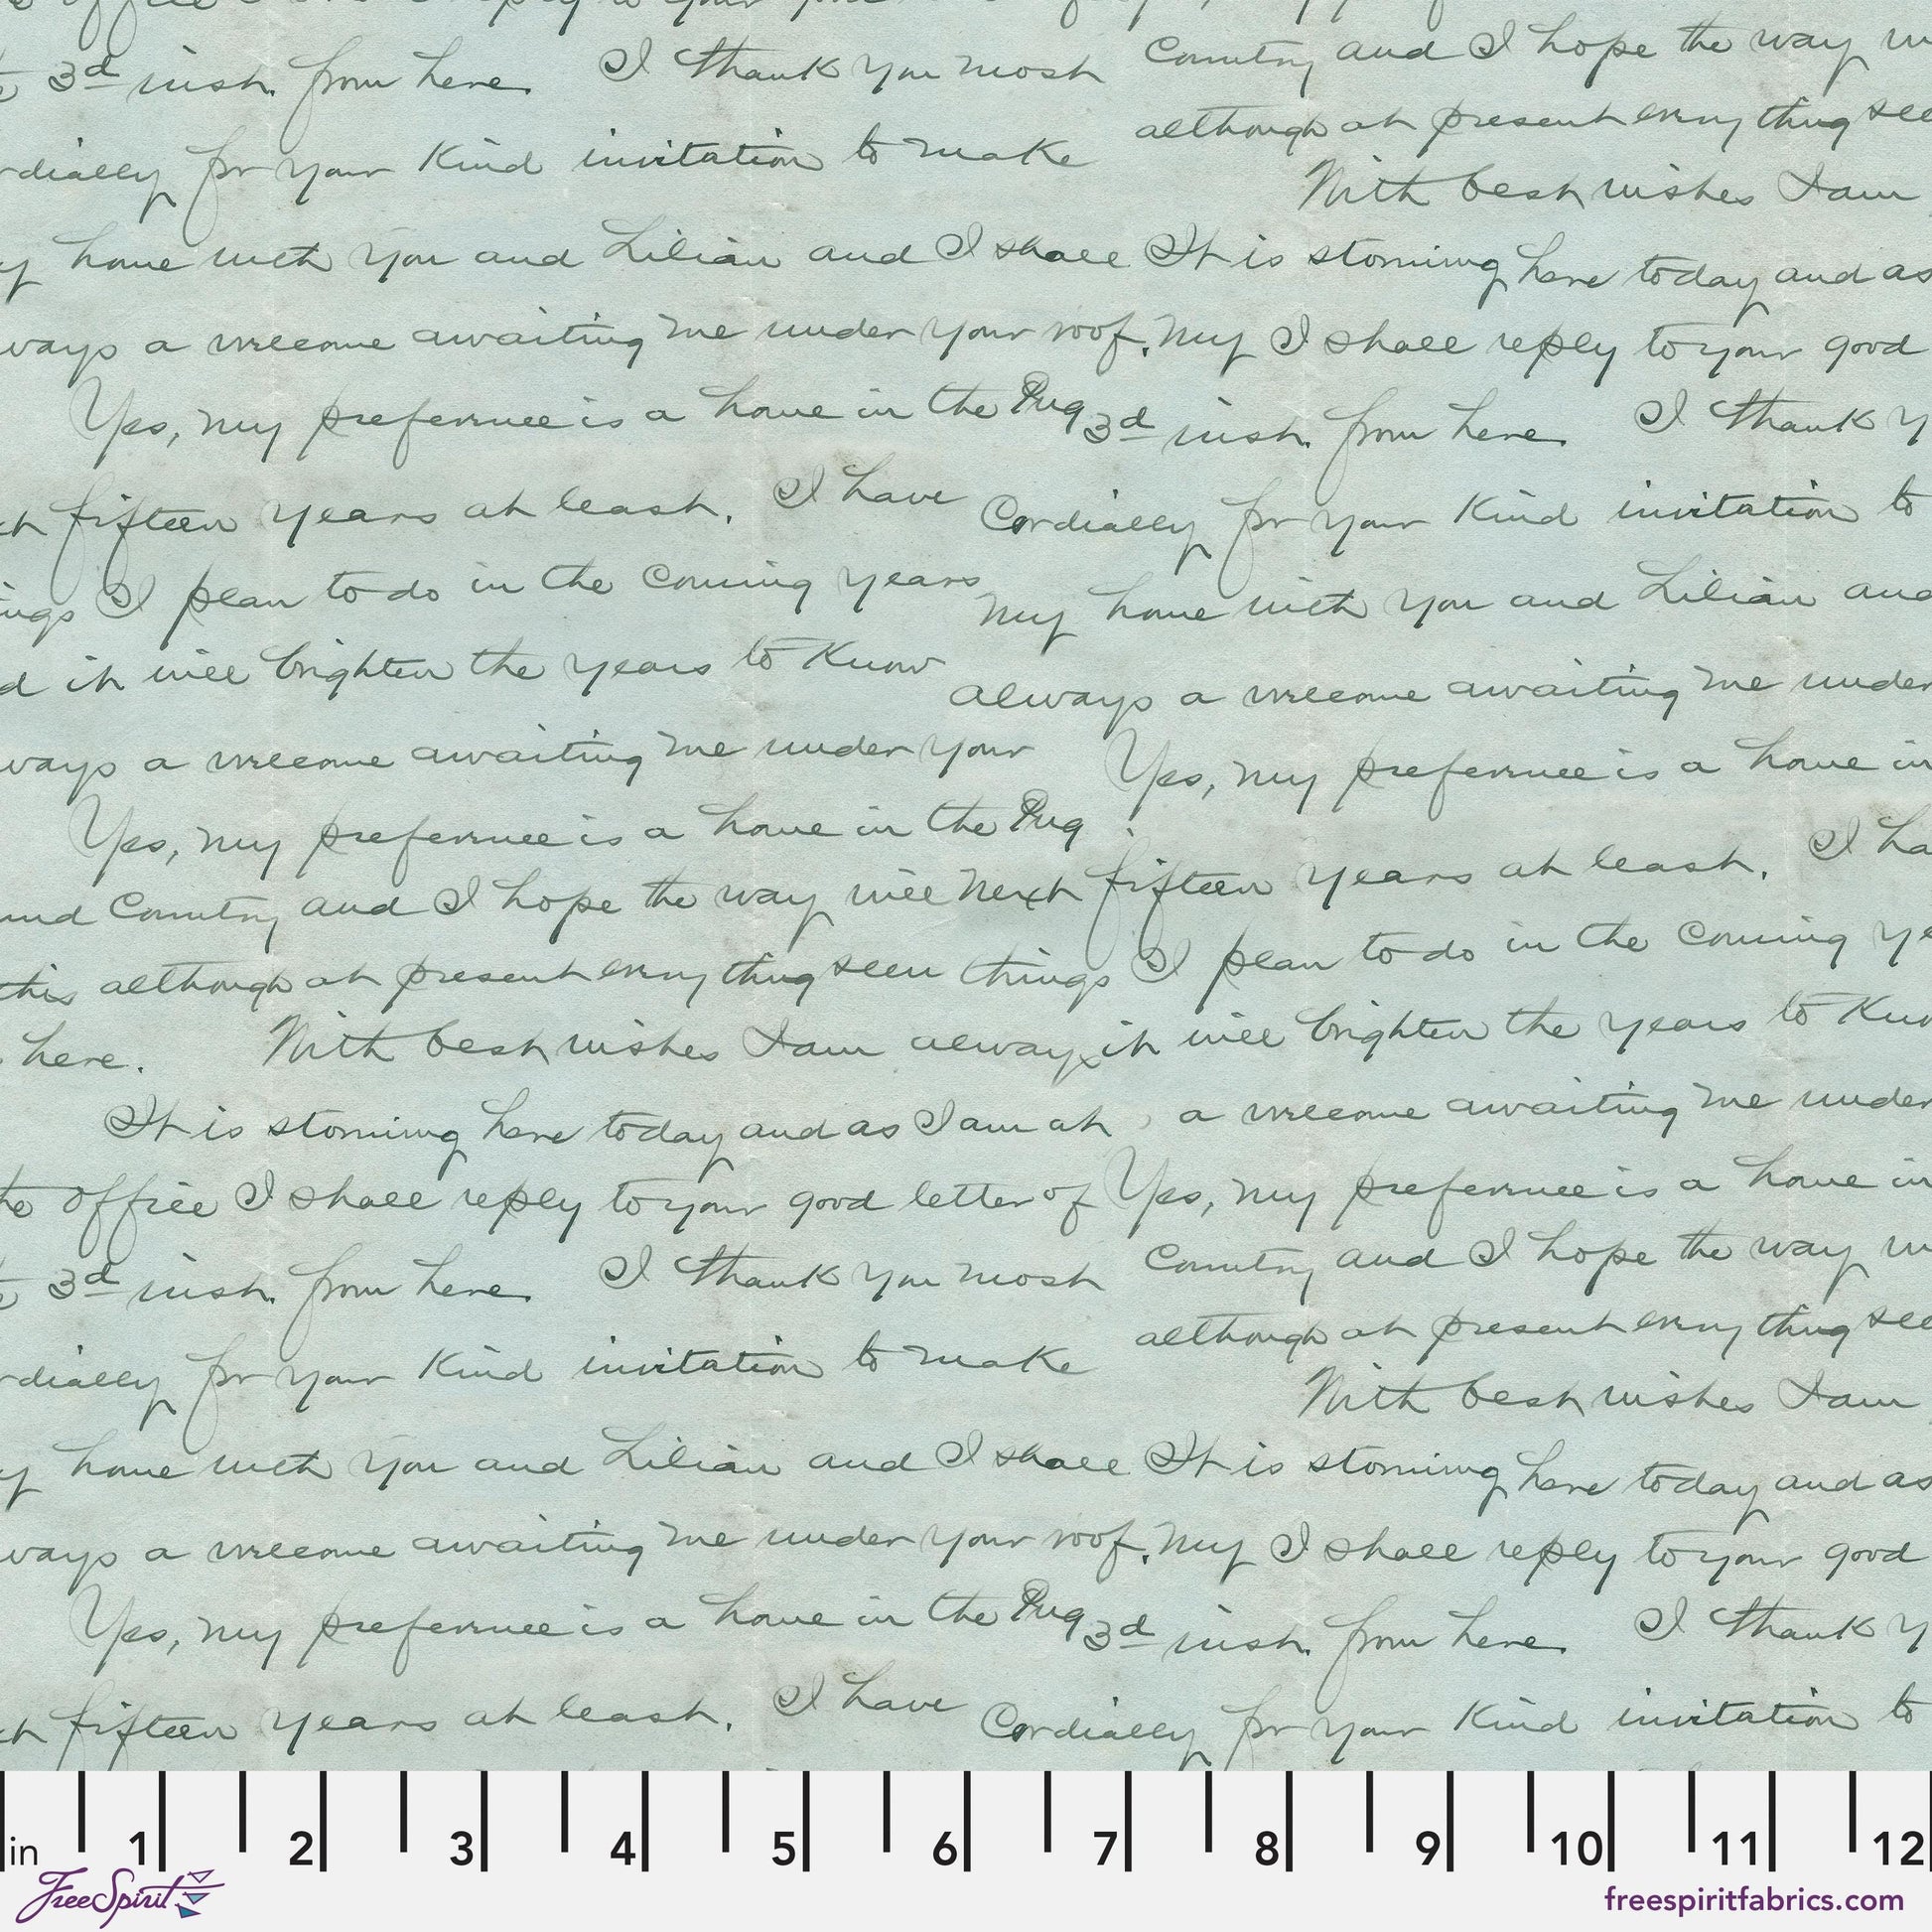 3d inst. from here. I thank you most Country and I hope the way
for your Kind invitation to make although at present everything
With best wishes I am
home with you and Lilian and I shall It is storming here today and as
ways a welcome awaiting me under your roof. My I shall reply to your good
Yes, my preference is a home in the 3d inst. from here. I thank
fifteen years at least. I have Cordially for your Kind invitation to
I plan to do in the coming years My home with you and Lilian and
it will brighten the years to Know always a welcome awaiting me under
ways a welcome awaiting me under your Yes, my preference is a home in
Yes, my preference is a home in the
fifteen years at least. I ha
Country and I hope the way will Next
this although at present everything seem things I plan to do in the coming
here. With best wishes I am always it will brighten the years to
It is storming here today and as I am at a welcome awaiting me under
the office I shall reply to your good letter of Yes, my preference is a home in
3d inst. from here. I thank you most Country and I hope the way
for your Kind invitation to make although at present everything
With best wishes I am
home with you and Lilian and I shall It is storming here today and as
ways a welcome awaiting me under your roof. My I shall reply to your good
Yes, my preference is a home in the 3d inst. from here. I thank
fifteen years at least. I have Cordially for your Kind invitation to
in 1 2 3 4 5 6 7 8 9 10 11 12
FreeSpirit
freespiritfabrics.com